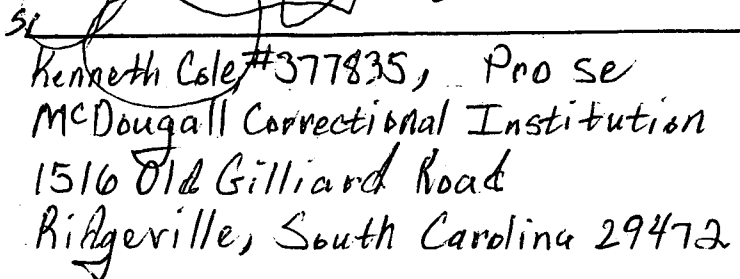 Kenneth Cole, #377835, Pro se
McDougall Correctional Institution
1516 Old Gilliard Road
Ridgeville, South Carolina 29472